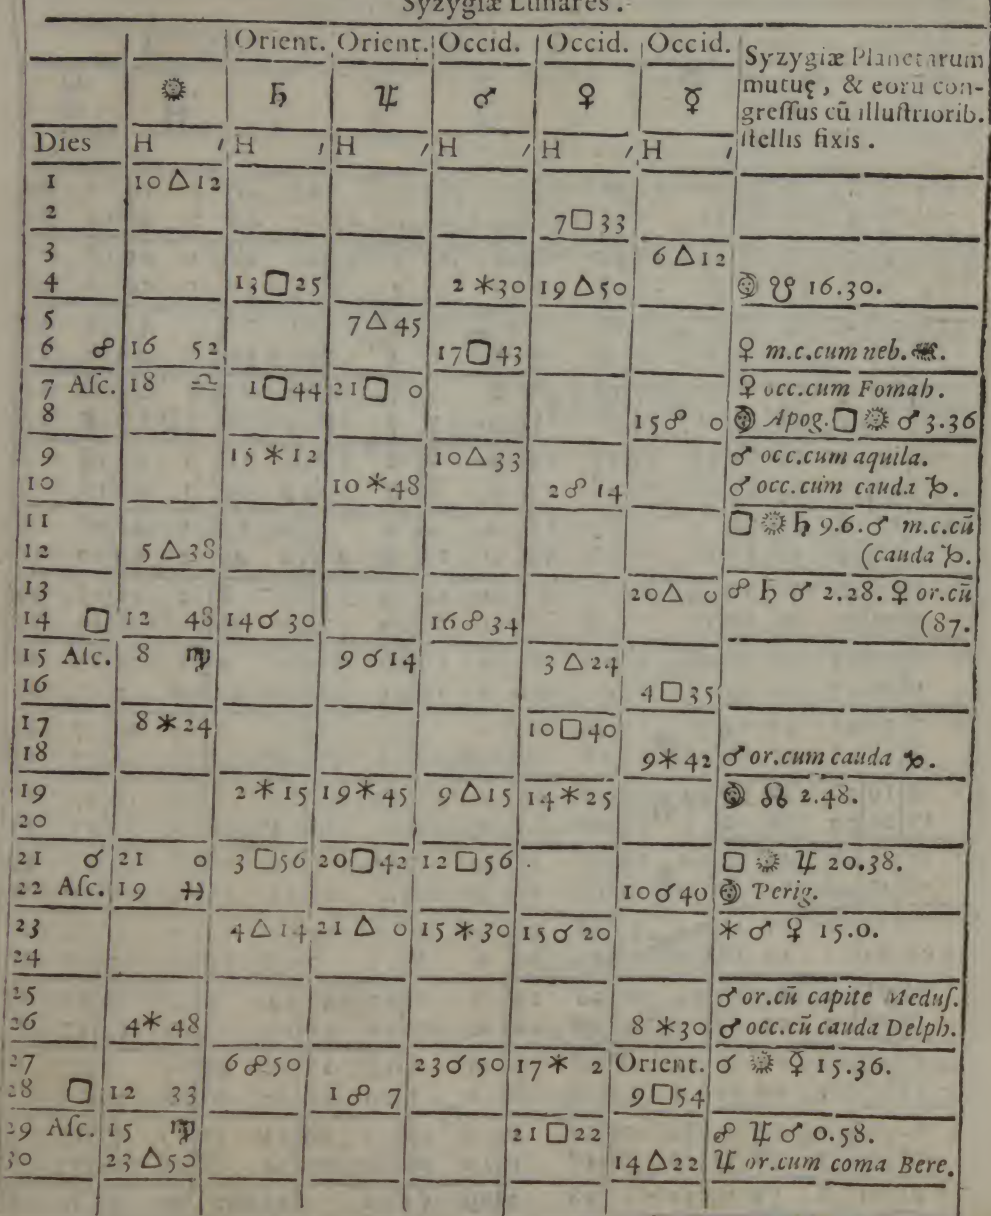 Syzygiæ Lunares.
Orient. Orient. Occid. Occid. Occid. Syzygiæ Planetarum
☼ ♄ ♃ ♂ ♀ ☿ mutuę, & eorū con-
greſſus cū illuſtriorib.
Dies H ′ H ′ H ′ H ′ H ′ H ′ ſtellis fixis.
1 10 △ 12
2 7 □ 33
3 6 △ 12
4 13 □ 25 2 ✶ 30 19 △ 50 ☽ ☋ 16.30.
5 7 △ 45
6 ☍ 16 52 17 □ 43 ♀ m.c.cum neb. ♋.
7 Aſc. 18 ♎ 1 □ 44 21 □ 0 ♀ occ.cum Fomah.
8 15 ☍ 0 ☽ Apog. □ ☼ ♂ 3.36
9 15 ✶ 12 10 △ 33 ♂ occ.cum aquila.
10 10 ✶ 48 2 ☍ 14 ♂ occ.cum cauda ♑.
11 □ ☼ ♄ 9.6. ♂ m.c.cū
12 5 △ 38 (cauda ♑.
13 20 △ 0 ☍ ♄ ♂ 2.28. ♀ or.cū
14 □ 12 48 14 ☌ 30 16 ☍ 34 (87.
15 Aſc. 8 ♍ 9 ☌ 14 3 △ 24
16 4 □ 35
17 8 ✶ 24 10 □ 40
18 9 ✶ 42 ♂ or.cum cauda ♑.
19 2 ✶ 15 19 ✶ 45 9 △ 15 14 ✶ 25 ☽ ☊ 2.48.
20
21 ☌ 21 0 3 □ 56 20 □ 42 12 □ 56 □ ☼ ♃ 20.38.
22 Aſc. 19 ♓ 10 ☌ 40 ☽ Perig.
23 4 △ 14 21 △ 0 15 ✶ 30 15 ☌ 20 ✶ ♂ ♀ 15.0.
24
25 ♂ or.cū capite Meduſ.
26 4 ✶ 48 8 ✶ 30 ♂ occ.cū cauda Delph.
27 6 ☍ 50 23 ☌ 50 17 ✶ 2 Orient. ☌ ☼ ☿ 15.36.
28 □ 12 33 1 ☍ 7 9 □ 54
29 Aſc. 15 ♍ 21 □ 22 ☍ ♃ ♂ 0.58.
30 23 △ 50 14 △ 22 ♃ or.cum coma Bere.